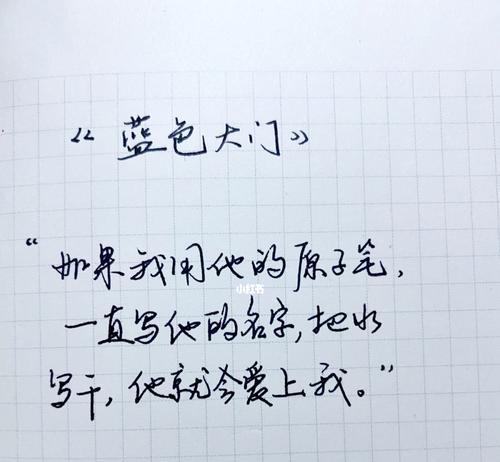 《蓝色大门》
“如果我用他的原子笔，
小红书
一直写他的名字，把水
写干，他就会爱上我。”